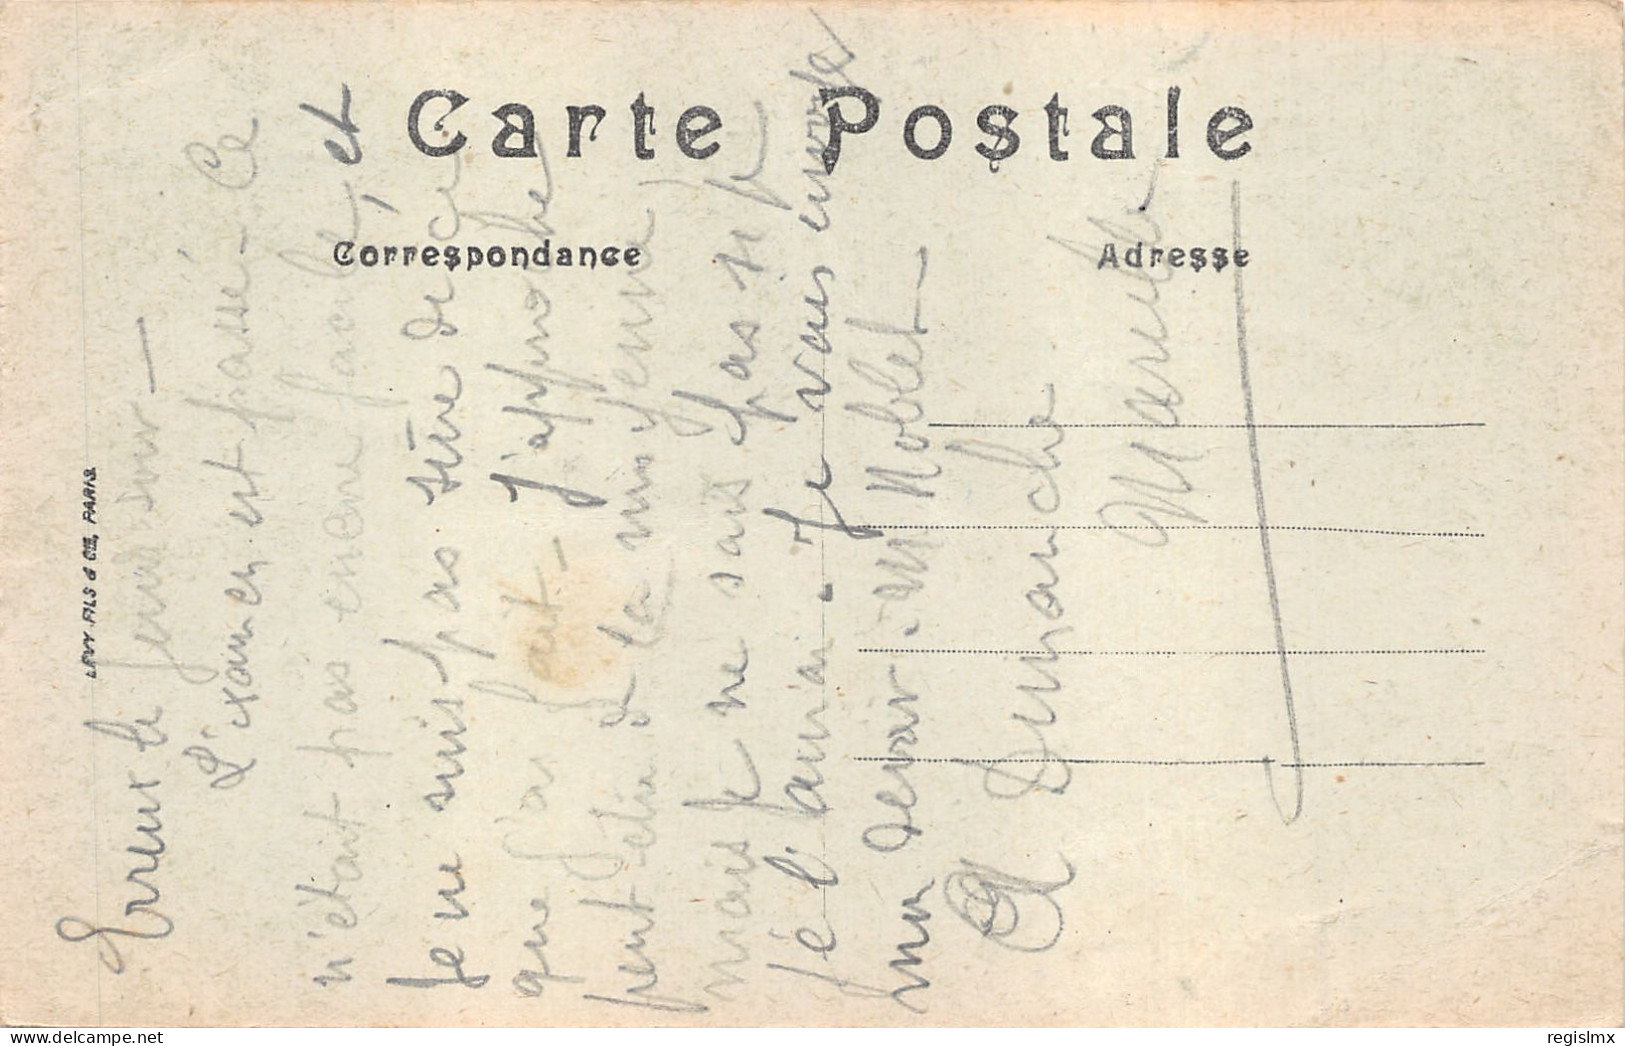 Carte Postale
Correspondance
Adresse
LEVY FILS & CIE, PARIS
Erreur le jeudi soir —
L'examen est passé. Ce
n'était pas encore facile, et
je ne suis pas sûre de ce
que j'ai fait. J'approche
peut être de la moyenne
mais je ne sais pas si je
l'aurai. Je vais envoyer
mon devoir. M Noblet —
A Dimanche
Marcelle
regislmx